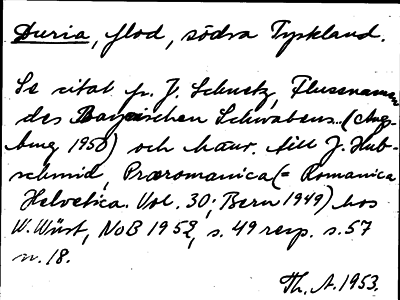 Duria, flod, södra Tyskland.
Se citat fr. J. Schnetz, Flussnamen
des Bayerischen Schwabens. (Augs-
burg 1950) och hänv. till J. Hub-
schmid, Præromanica (= Romanica
Helvetica. Vol. 30; Bern 1949) hos
W. Wüst, NoB 1952, s. 49 resp. s. 57
n. 18.
Th. A. 1953.